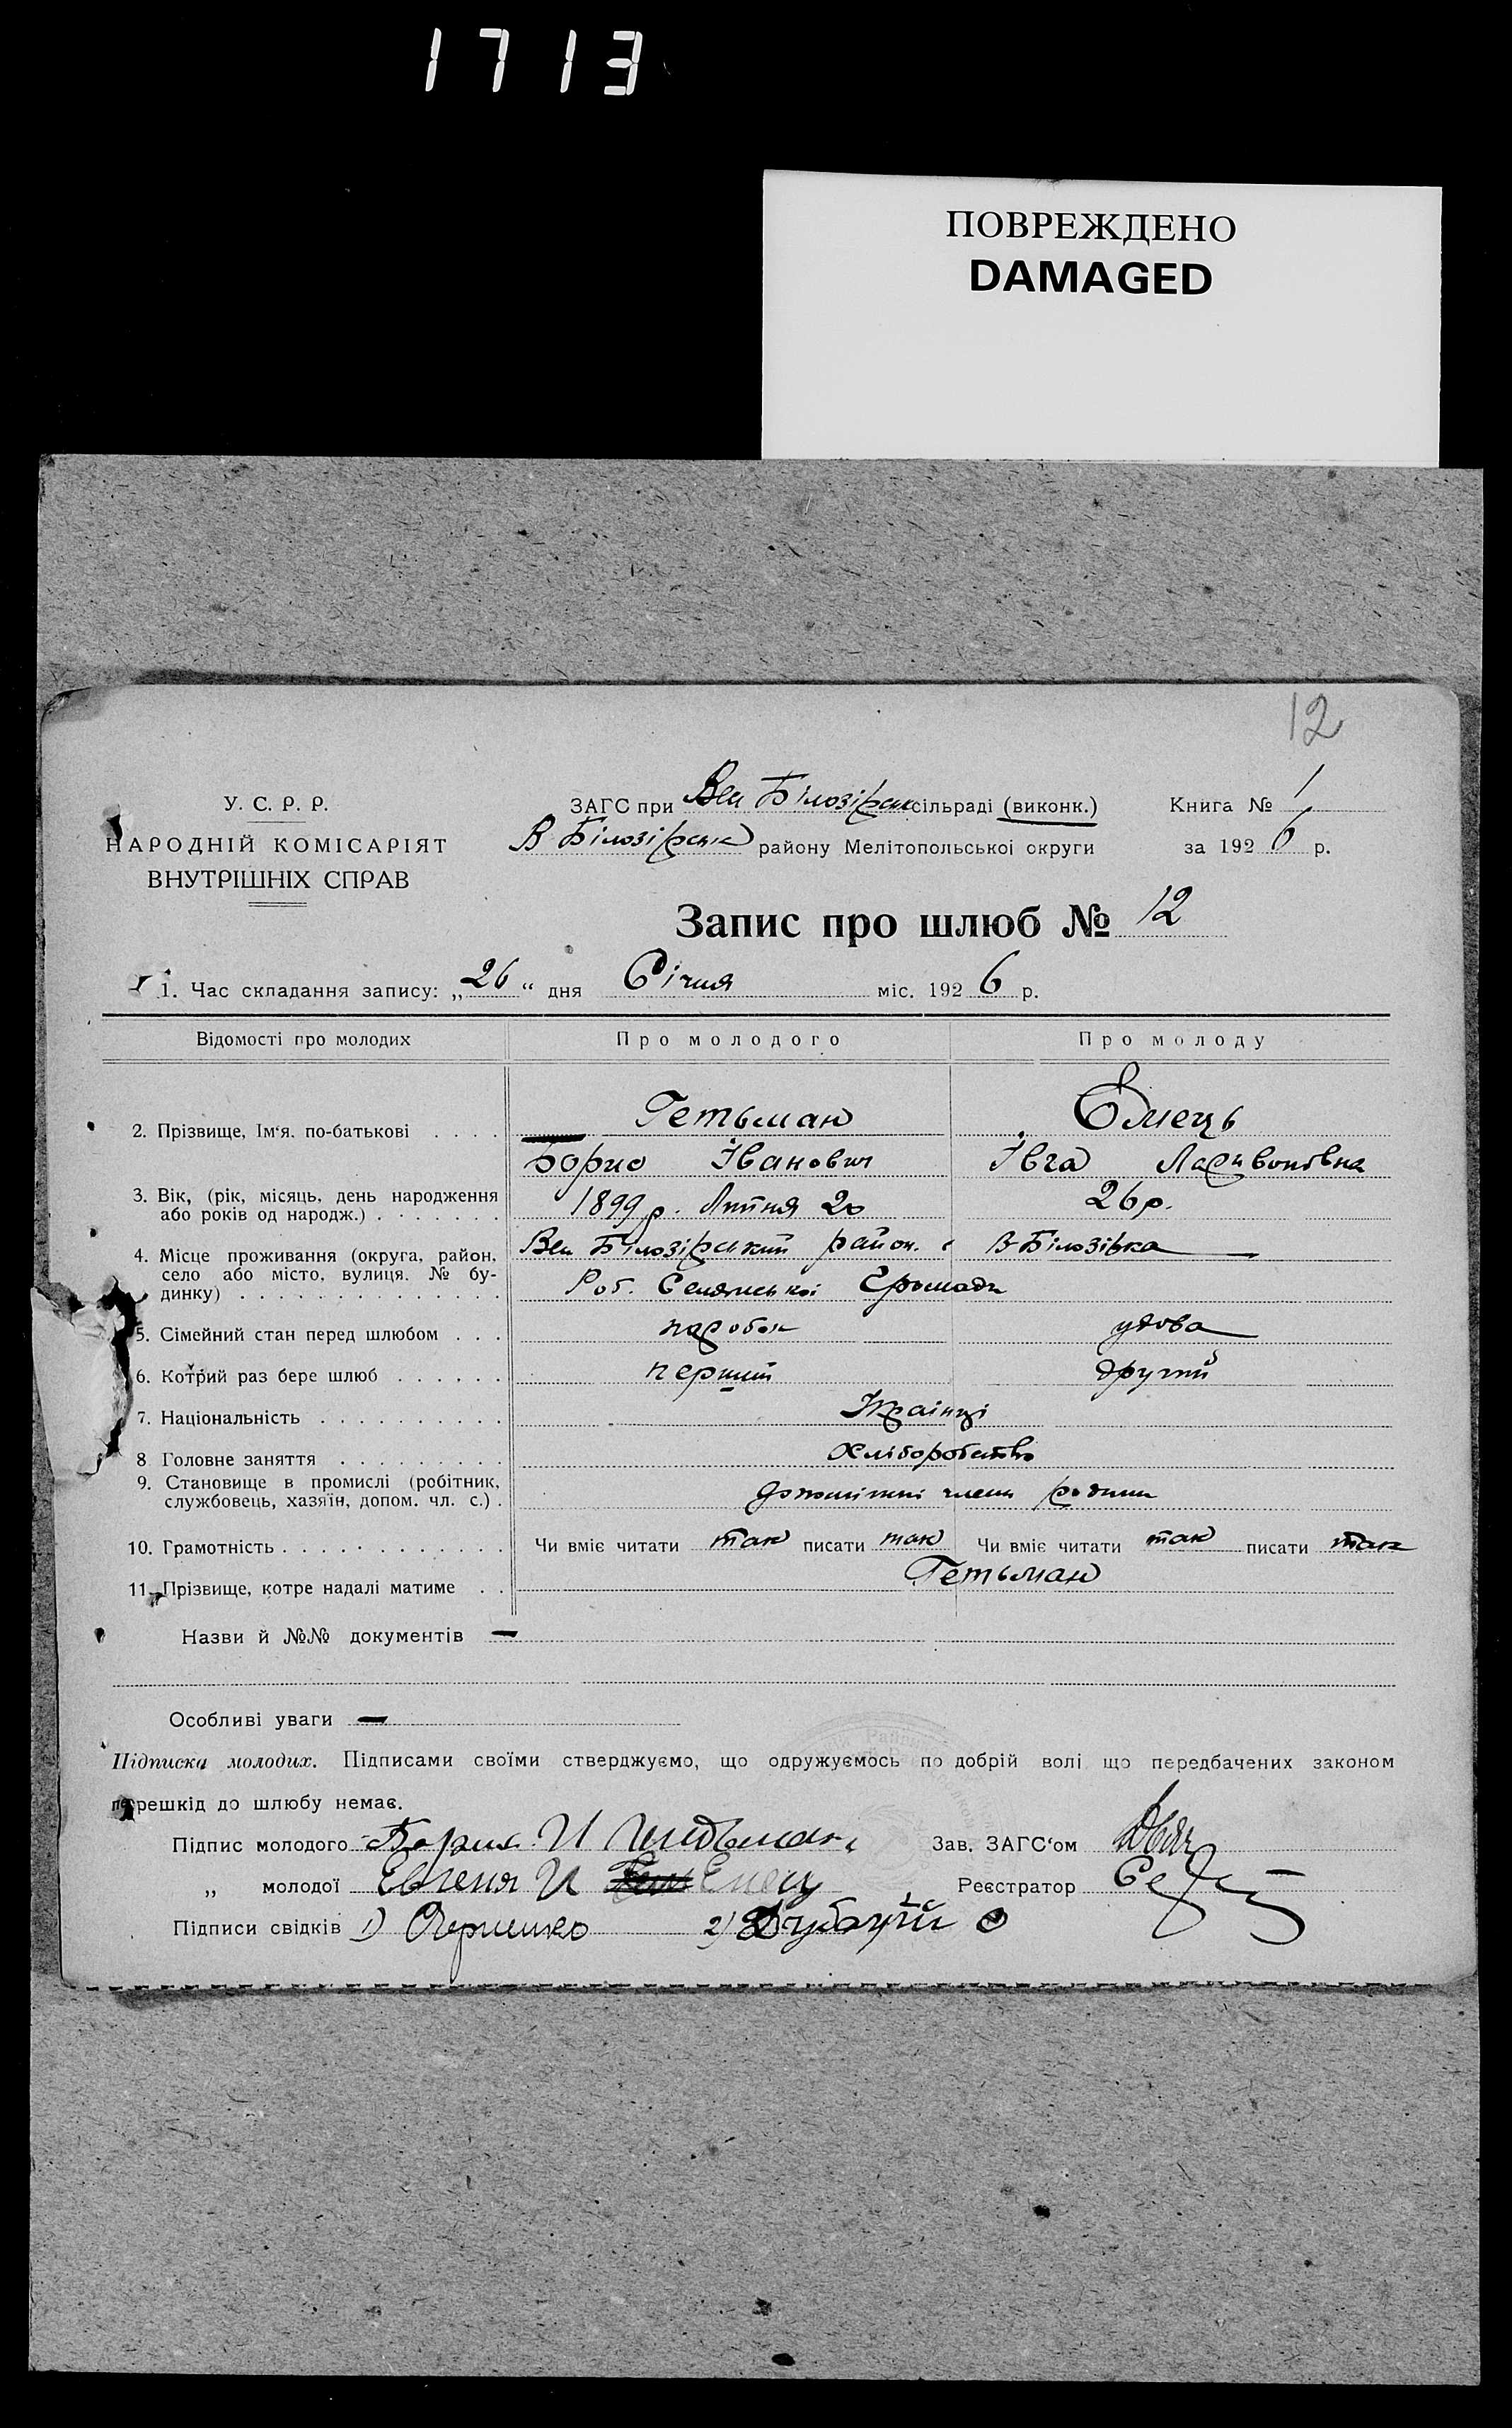 1713
ПОВРЕЖДЕНО
DAMAGED
12
У. С. Р. Р.
НАРОДНІЙ КОМІСАРІЯТ
ВНУТРІШНІХ СПРАВ
ЗАГС при Вел Білозірськ сільраді (виконк.)
В Білозірськ району Мелітопольської округи
Книга № 1
за 1926 р.
Запис про шлюб № 12
1. Час складання запису: „26“ дня Січня міс. 1926 р.
Відомості про молодих Про молодого Про молоду
2. Прізвище, Ім‘я. по-батькові . . . . Гетьман Ємець
Борис Іванович Івга
3. Вік, (рік, місяць, день народження
або років од народж.) . . . . . . . 1899 р. 20 26 р.
4. Місце проживання (округа, район, Вел Білозірський район. В-Білозірка
село або місто, вулиця. № бу-
динку) . . . . . . . . . . . . . . Роб. Селянської Громади
5. Сімейний стан перед шлюбом . . . парубок удова
6. Котрий раз бере шлюб . . . . . . перший другий
7. Національність . . . . . . . . . . Українці
8 Головне заняття . . . . . . . . . Хліборобство
9. Становище в промислі (робітник,
службовець, хазяїн, допом. чл. с.) . допоміжні члени родини
10. Грамотність . . . . . . . . . . . . Чи вміє читати так писати так Чи вміє читати так писати так
11. Прізвище, котре надалі матиме . . Гетьман
Назви й №№ документів —
Особливі уваги —
Підписка молодих. Підписами своїми стверджуємо, що одружуємось по добрій волі що передбачених законом
перешкід до шлюбу немає.
Підпис молодого Борис И Зав. ЗАГС‘ом
„ молодої Евгения И Емец Реєстратор
Підписи свідків 1) 2)